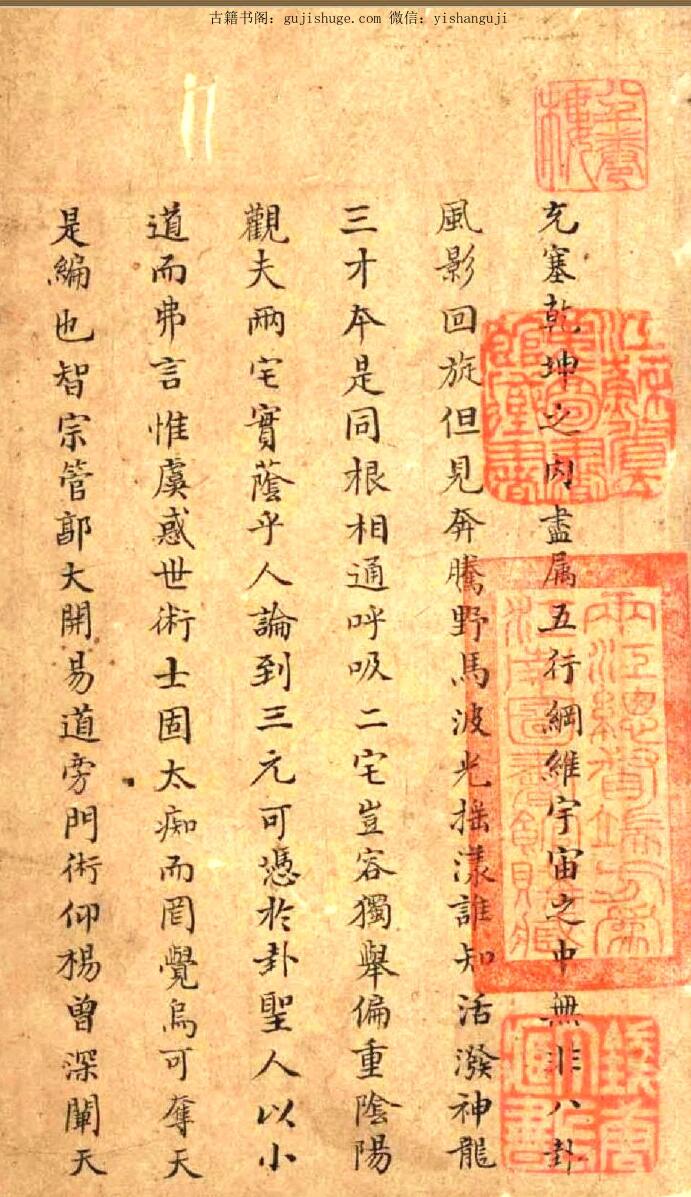 古籍书阁：gujishuge.com 微信：yishanguji
充塞乾坤之内盡属五行綱維宇宙之中無非八卦
風影回旋但見奔騰野馬波光揺漾誰知活潑神龍
三才本是同根相通呼吸二宅豈容獨舉偏重陰陽
觀夫兩宅實蔭乎人論到三元可憑於卦聖人以小
道而弗言惟虞惑世術士固太痴而罔覺烏可奪天
是編也智宗管郭大開易道旁門術仰楊曾深闡天
八千卷樓
江蘇第一圖書館藏書